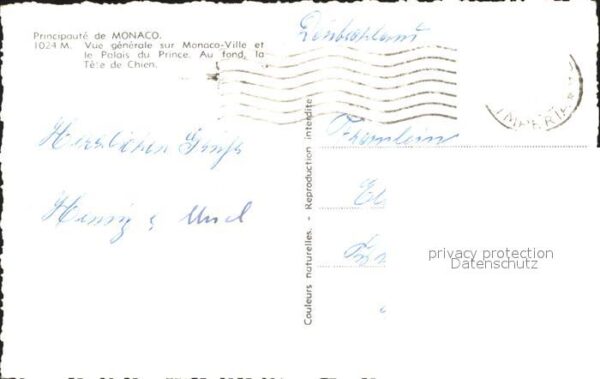 Principauté de MONACO.
1024 M. Vue générale sur Monaco-Ville et
le Palais du Prince. Au fond, la
Tête de Chien.
Deutschland
IMPERIA
Herzlichen Gruß
Fräulein
El
Couleurs naturelles. - Reproduction interdite
privacy protection
Datenschutz